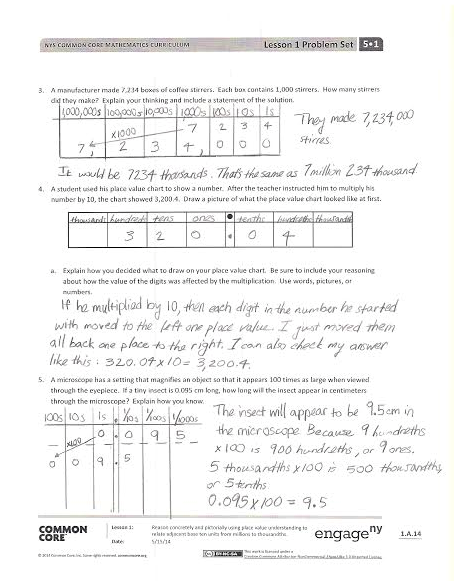 NYS COMMON CORE MATHEMATICS CURRICULUM Lesson 1 Problem Set 5•1
3. A manufacturer made 7,234 boxes of coffee stirrers. Each box contains 1,000 stirrers. How many stirrers
did they make? Explain your thinking and include a statement of the solution.
1,000,000s 100,000s 10,000s 1000s 100s 10s 1s
7 2 3 4
x1000
7, 2 3 4, 0 0 0
They made 7,234,000
stirres.
It would be 7234 thousands. That's the same as 7 million 234 thousand.
4. A student used his place value chart to show a number. After the teacher instructed him to multiply his
number by 10, the chart showed 3,200.4. Draw a picture of what the place value chart looked like at first.
thousands hundreds tens ones • tenths hundredths thousandths
3 2 0 . 0 4
a. Explain how you decided what to draw on your place value chart. Be sure to include your reasoning
about how the value of the digits was affected by the multiplication. Use words, pictures, or
numbers.
If he multiplied by 10, then each digit in the number he started
with moved to the left one place value. I just moved them
all back one place to the right. I can also check my answer
like this: 320.04 x 10 = 3,200.4.
5. A microscope has a setting that magnifies an object so that it appears 100 times as large when viewed
through the eyepiece. If a tiny insect is 0.095 cm long, how long will the insect appear in centimeters
through the microscope? Explain how you know.
100s 10s 1s . 1/10s 1/100s 1/1000s
0 . 0 9 5
x100
0 0 9 . 5
The insect will appear to be 9.5cm in
the microscope Because 9 hundreths
x 100 is 900 hundreths, or 9 ones.
5 thousandths x 100 is 500 thousandths,
or 5 tenths.
0.095 x 100 = 9.5
COMMON
CORE
Lesson 1: Reason concretely and pictorially using place value understanding to
relate adjacent base ten units from millions to thousandths.
Date: 5/15/14
engage ny
1.A.14
© 2014 Common Core, Inc. Some rights reserved. commoncore.org
This work is licensed under a
Creative Commons Attribution-NonCommercial-ShareAlike 3.0 Unported License.